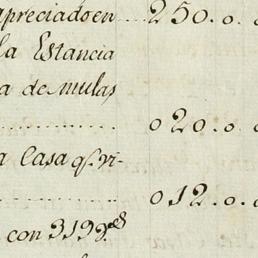 apreciado en 250. o.
la Estancia
a de mulas
o 20. o.
a Casa qe. vi-
o 12. o.
con 3199